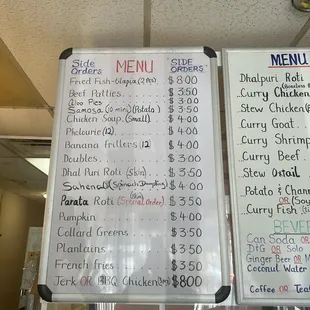 Side Orders
MENU
"SIDE ORDERS"
Fried Fish-tilapia (2 Pcs) $8.00
Beef Patties $3.50
Aloo Pies $3.00
Samosa (2 mini) (Potato) $3.50
Chicken Soup (Small) $4.00
Pholourie (12) $4.00
Banana fritters 12 $4.00
Doubles $3.00
Dhal Puri Roti (Skin) $3.50
Saheena $4.00
Parata Roti (Special Order) $3.50
Pumpkin $4.00
Collard Greens $3.50
Plantains $3.50
French fries $3.50
Jerk OR BBQ Chicken $8.00
MENU
Dhalpuri Roti
Curry Chicken
Stew Chicken
Curry Goat
Curry Shrimp
Curry Beef
Stew Oxtail
Potato & Chann
OR (Soy
Curry Fish
BEVE
Can Soda OR
DtG OR Solo
Ginger Beer OR M
Coconut Water
Coffee OR Tea